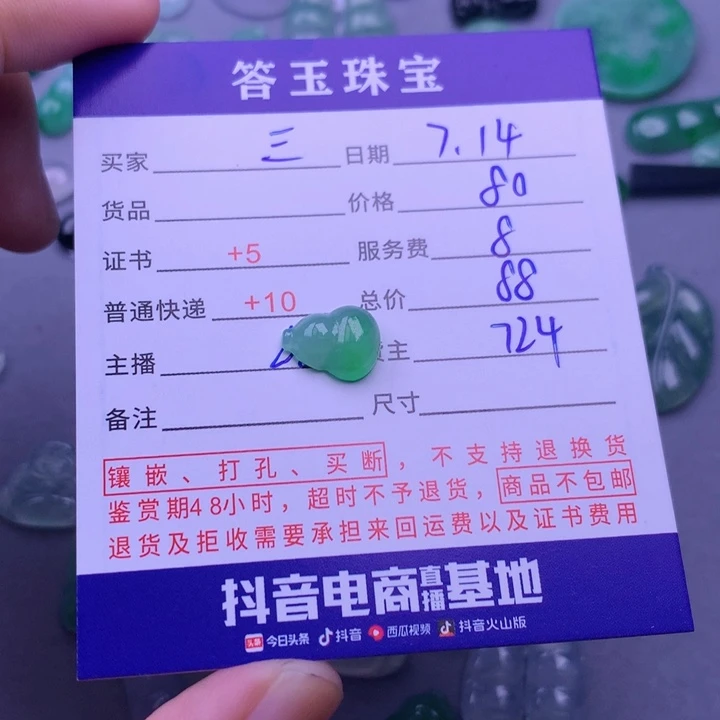 答玉珠宝
买家 三 日期 7.14
货品 价格 80
证书 +5 服务费 8
普通快递 +10 总价 88
主播 主 724
备注 尺寸
镶嵌、打孔、买断，不支持退换货
鉴赏期48小时，超时不予退货，商品不包邮
退货及拒收需要承担来回运费以及证书费用
抖音电商直播基地
头条 今日头条 抖音 西瓜视频 抖音火山版